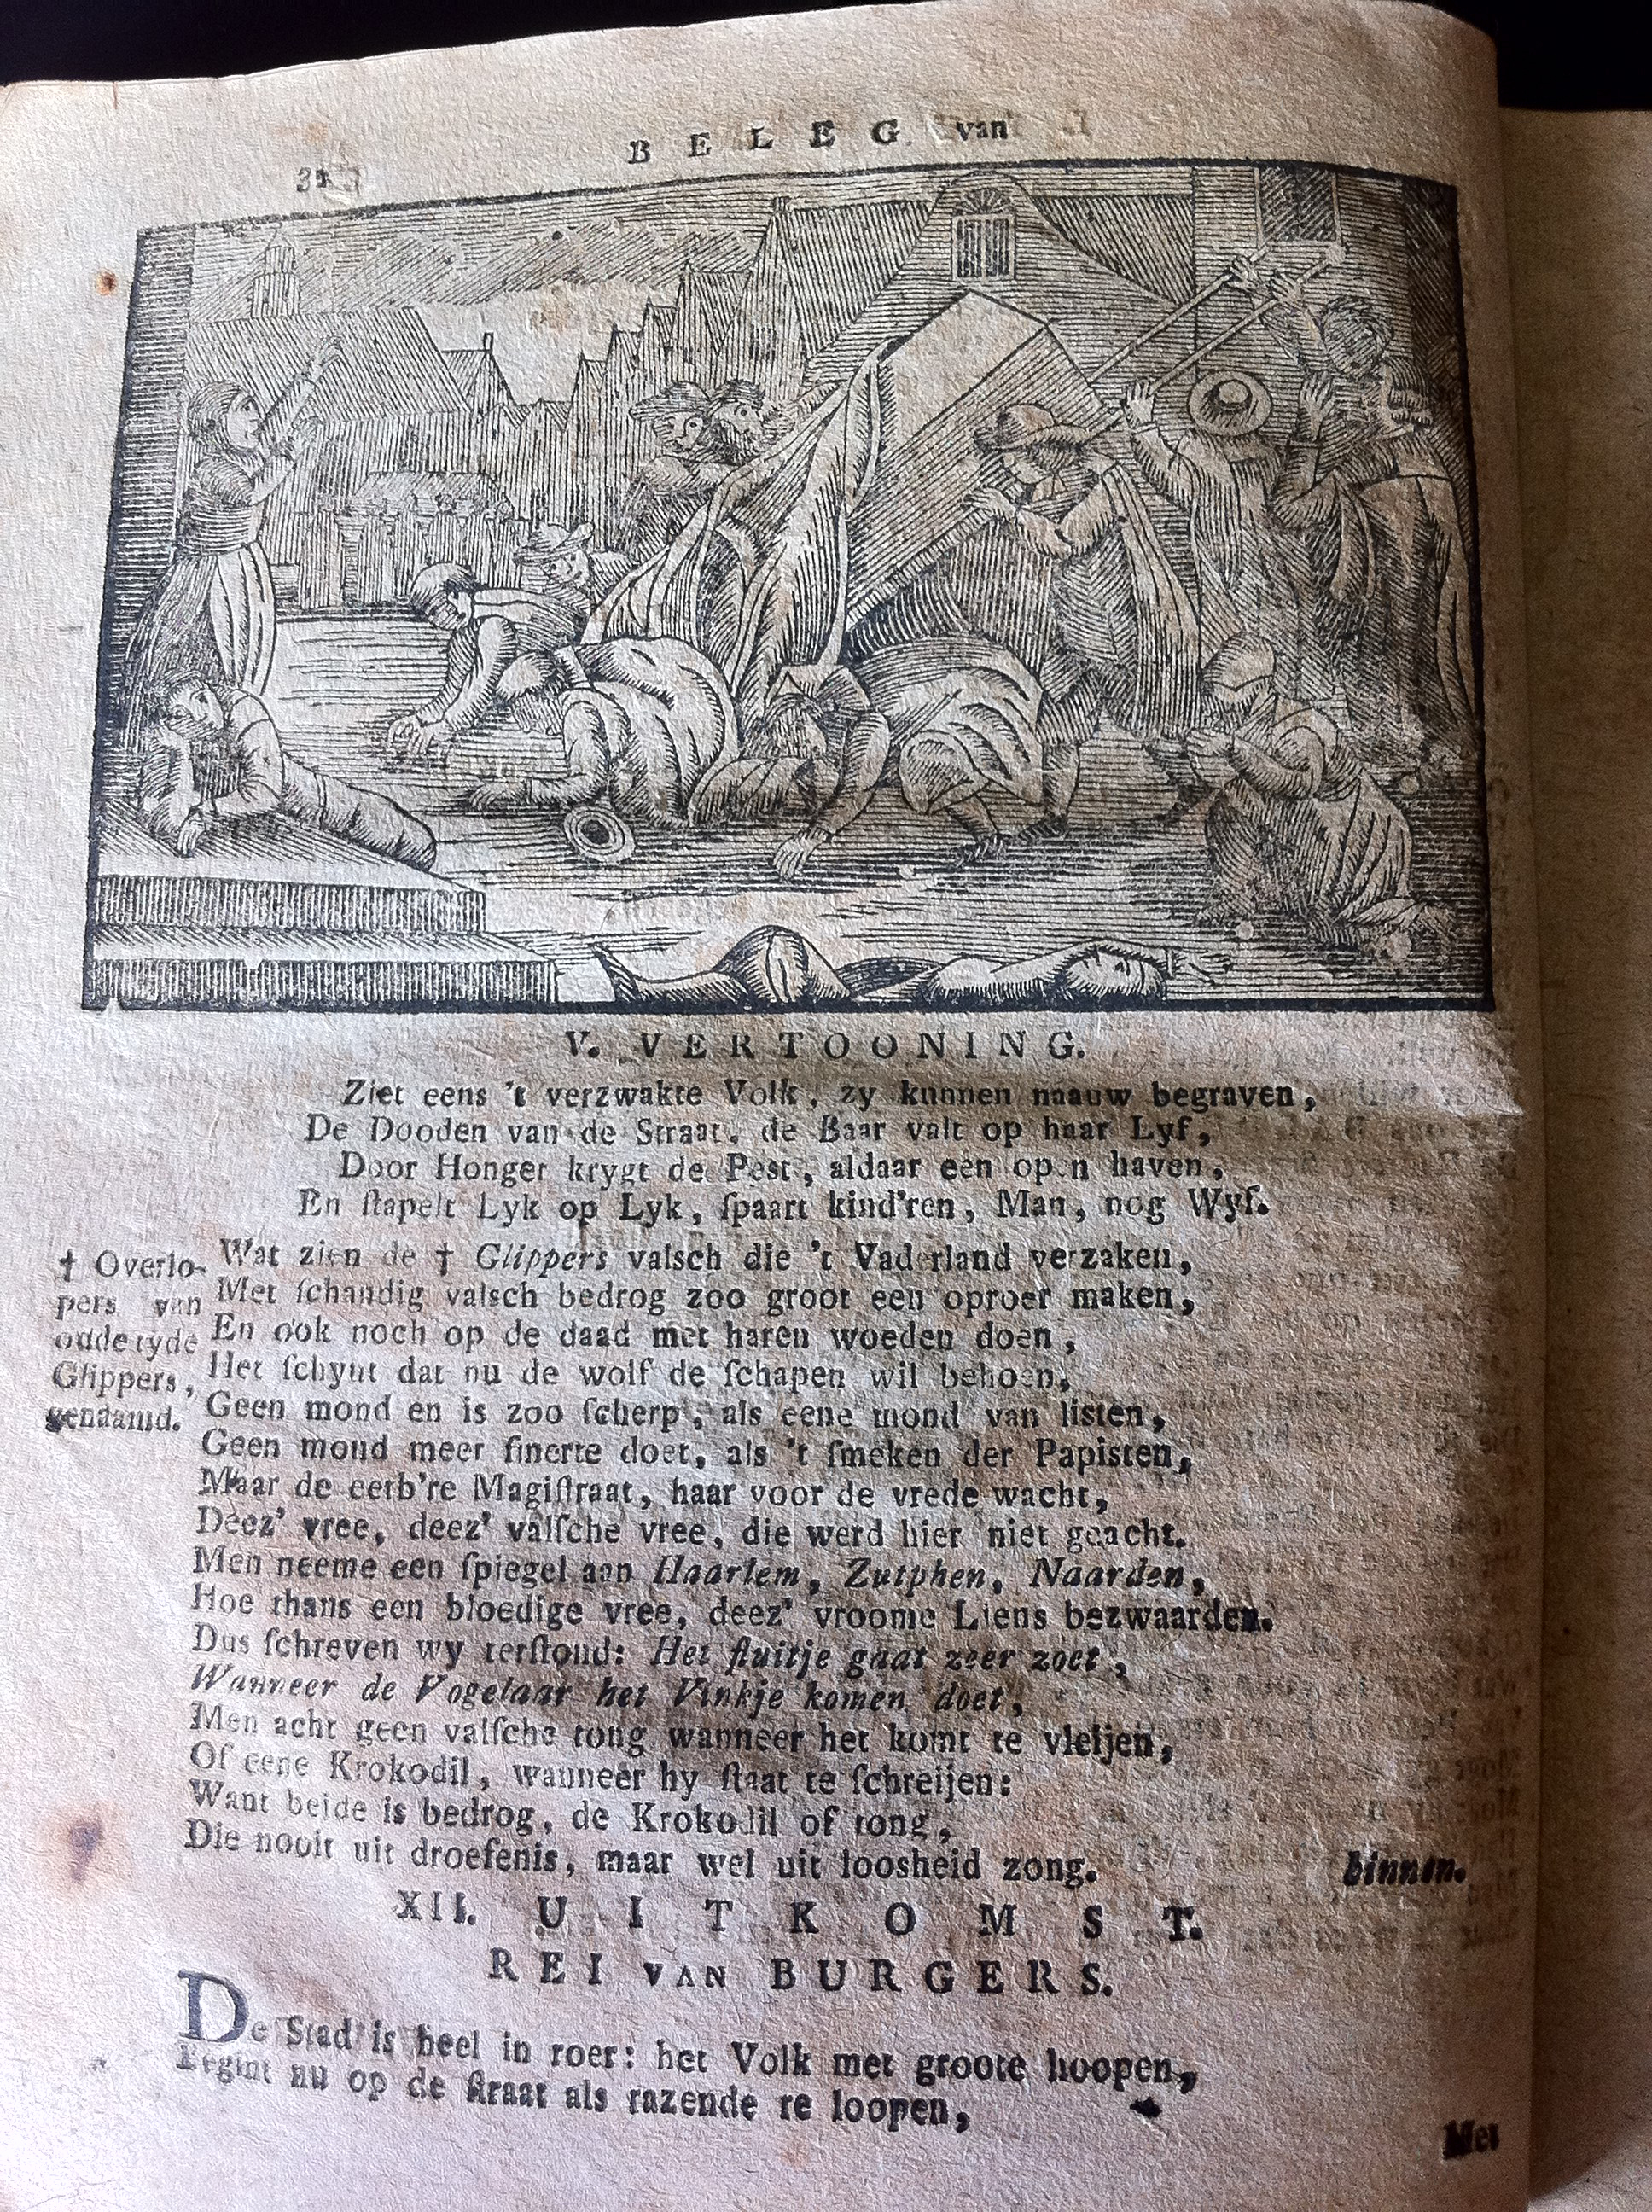 BELEG van
V. VERTOONING.
Ziet eens 't verzwakte Volk, zy kunnen naauw begraven,
De Dooden van de Straat, de Baar valt op haar Lyf,
Door Honger krygt de Pest, aldaar een op n haven,
En ſtapelt Lyk op Lyk, ſpaart kind'ren, Man, nog Wyf.
Wat zien de † Glippers valsch die 't Vaderland verzaken,
Met ſchandig valsch bedrog zoo groot een oproer maken,
En ook noch op de daad met haren woeden doen,
Het ſchynt dat nu de wolf de ſchapen wil behoen,
Geen mond en is zoo ſcherp, als eene mond van listen,
Geen mond meer ſinerte doet, als 't ſmeken der Papisten,
Maar de eerb're Magiſtraat, haar voor de vrede wacht,
Deez' vree, deez' valſche vree, die werd hier niet geacht.
Men neeme een ſpiegel aan Haarlem, Zutphen, Naarden,
Hoe thans een bloedige vree, deez' vroome Liens bezwaarden.
Dus ſchreven wy terſtond: Het fluitje gaat zeer zoet,
Wanneer de Vogelaar het Vinkje komen doet,
Men acht geen valſche tong wanneer het komt te vleijen,
Of eene Krokodil, wanneer hy ſtaat te ſchreijen:
Want beide is bedrog, de Krokodil of tong,
Die nooit uit droefenis, maar wel uit loosheid zong. binnen.
† Overlo-
pers van
oude tyde
Glippers,
genaamd.
XII. UITKOMST.
REI VAN BURGERS.
De Stad is heel in roer: het Volk met groote hoopen,
Begint nu op de ſtraat als razende te loopen,
Met